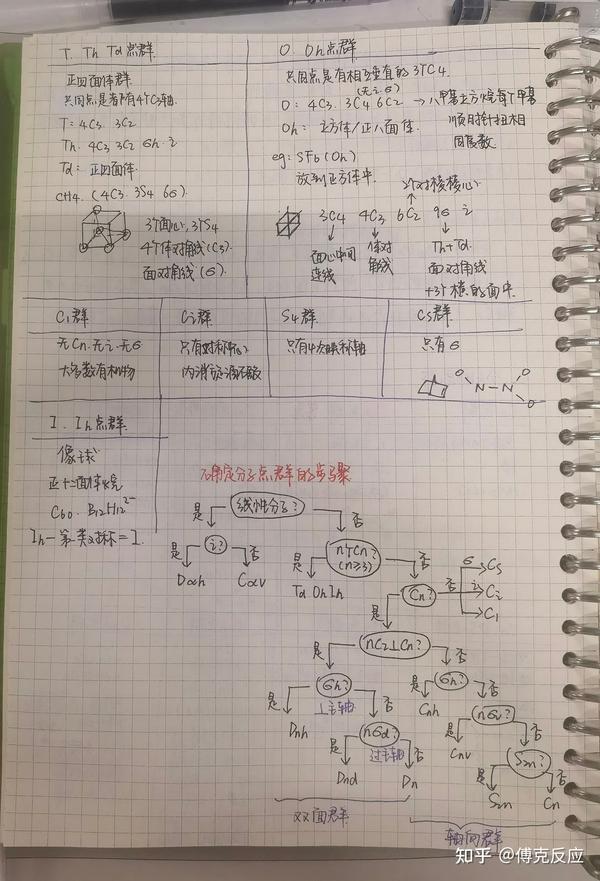 T. Th Td点群
正四面体群.
共同点是都有4个C3轴.
T: 4C3 3C2
Th: 4C3 3C2 6h i
Td: 正四面体.
CH4. (4C3. 3S4 6σ)
3个面心, 3个S4
4个体对角线(C3).
面对角线(σ).
O. Oh点群
共同点是有相互垂直的3个C4.
(无i.σ)
O: 4C3. 3C4 6C2 → 八甲基立方烷每个甲基
顺时针扭相
同度数.
Oh: 立方体/正八面体.
eg: SF6(Oh)
放到正方体中.
对棱棱心
3C4 4C3 6C2 9σ i
面心中间
连线
体对
角线
Th+Td.
面对角线
+3个横的面中.
C1群
无Cn.无i.无σ
大多数有机物
Ci群
只有对称中心
S4群
只有4次映轴
Cs群
只有σ
O N—N O O
I. Ih点群.
像球
正十二面体烷
C60. B12H12 2-
确定分子点群的步骤
线性分子?
是 否
i?
是 否
D∞h C∞v
n个Cn?
(n≥3)
是 否
Td Oh Ih
Cn?
是 否
σ Cs
i Ci
C1
nC2⊥Cn?
是 否
σh?
⊥主轴
是 否
Dnh
nσd?
过主轴
是 否
Dnd Dn
σh?
是 否
Cnh
nσv?
是 否
Cnv
S2n?
是 否
S2n Cn
双面群
轴向群
知乎 @傅克反应